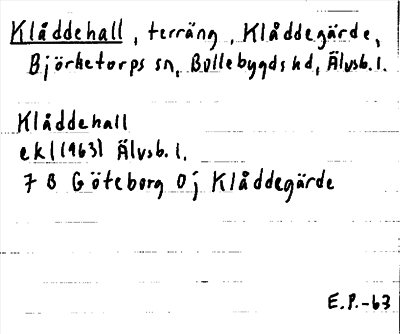 Klåddehall, terräng, Klåddegärde,
Björketorps sn, Bollebygds hd, Älvsb. l.
Klåddehall
ekl (1963) Älvsb. l.
7 B Göteborg 0 j Klåddegärde
E.P.-63